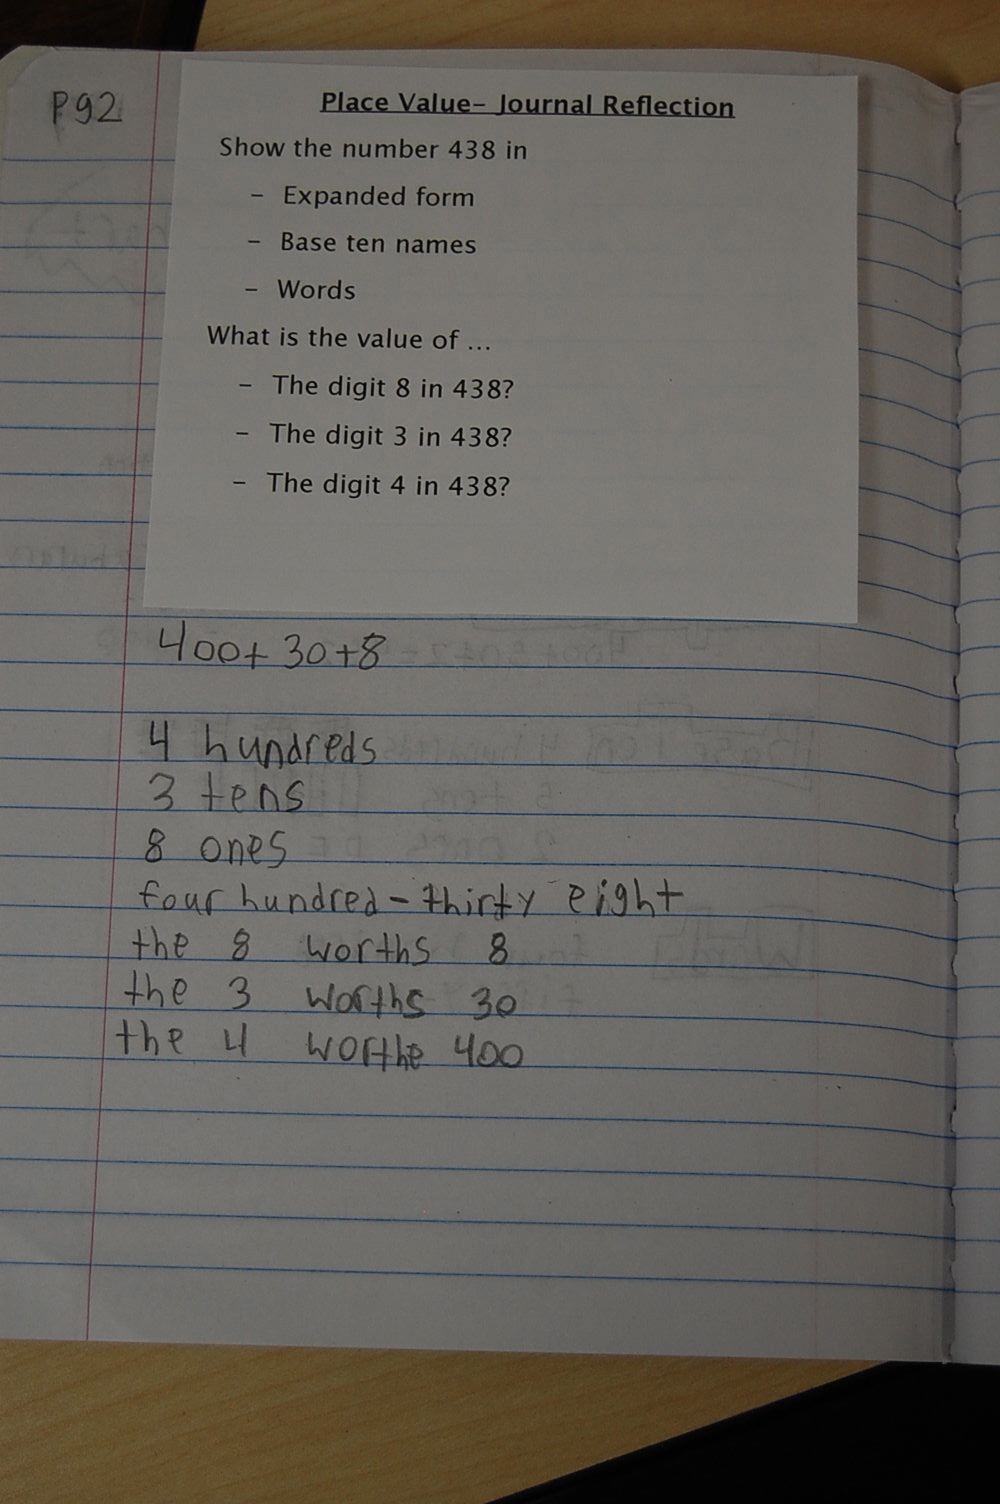 P92
Place Value- Journal Reflection
Show the number 438 in
- Expanded form
- Base ten names
- Words
What is the value of ...
- The digit 8 in 438?
- The digit 3 in 438?
- The digit 4 in 438?
400+ 30+8
4 hundreds
3 tens
8 ones
four hundred-thirty eight
the 8 worths 8
the 3 worths 30
the 4 worthe 400